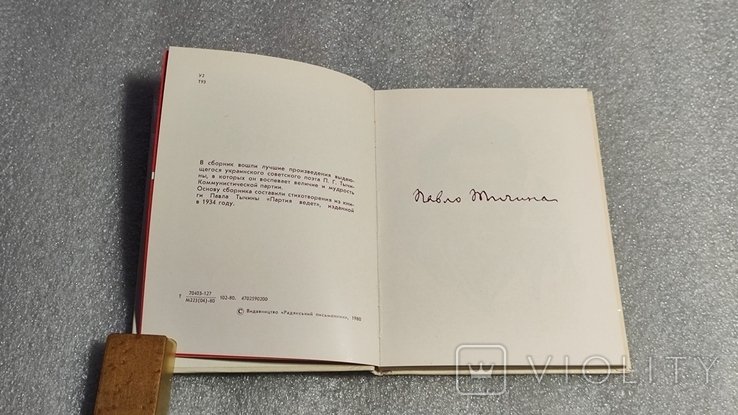 У2
Т93
В сборник вошли лучшие произведения выдаю-
щегося украинского советского поэта П. Г. Тычи-
ны, в которых он воспевает величие и мудрость
Коммунистической партии.
Основу сборника составили стихотворения из кни-
ги Павла Тычины «Партия ведет», изданной
в 1934 году.
Т 70403-127 102-80. 4702590200
М223(04)-80
© Видавництво «Радянський письменник», 1980
Павло Тичина
VIOLITY